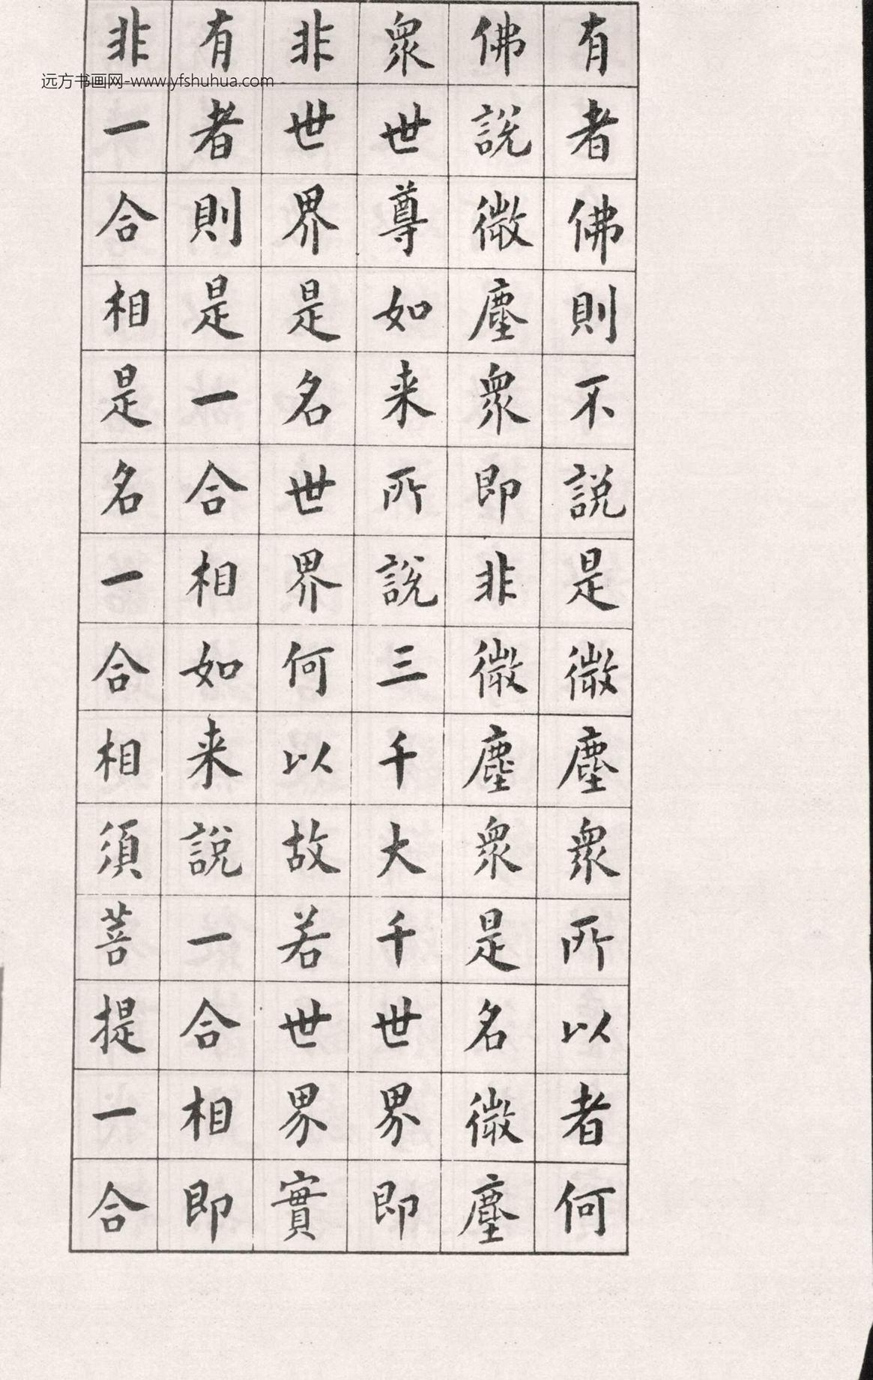 有者佛則不說是微塵衆所以者何
佛說微塵衆即非微塵衆是名微塵
衆世尊如来所說三千大千世界即
非世界是名世界何以故若世界實
有者則是一合相如来說一合相即
非一合相是名一合相須菩提一合
远方书画网-www.yfshuhua.com